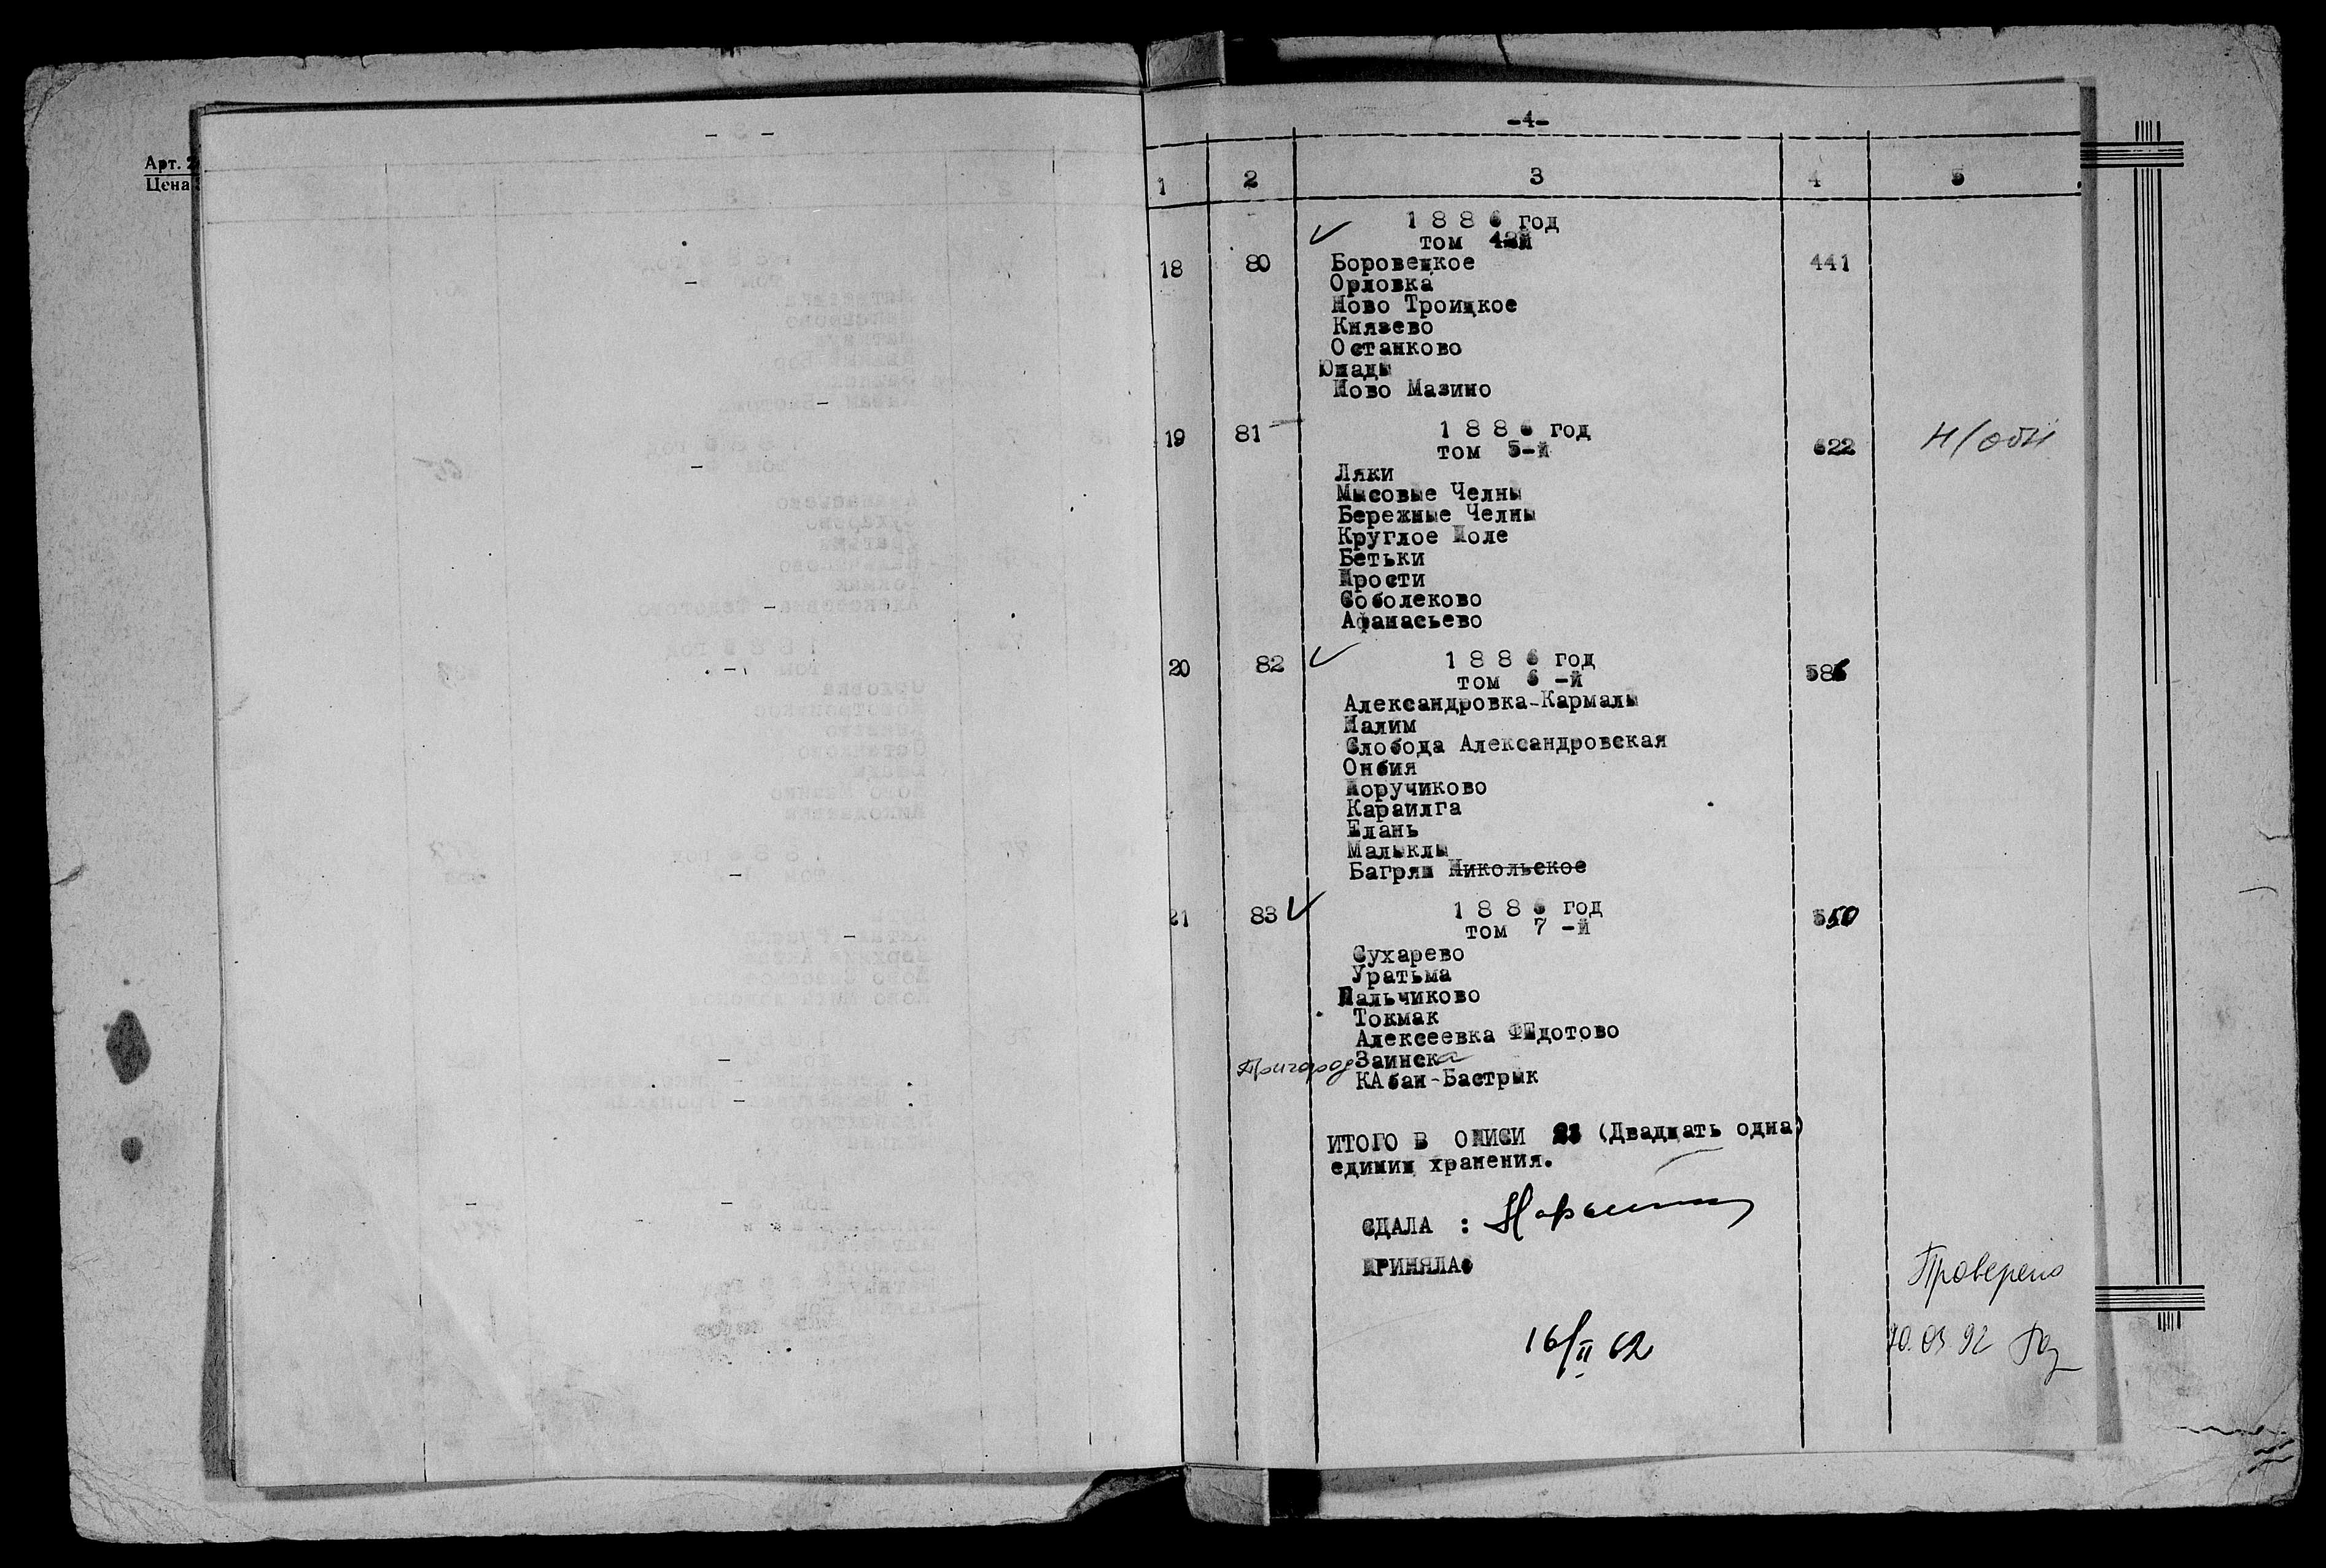 Арт. 2
Цена
-4-
1 2 3 4 5
1 8 8 6 год
том
18 80 Боровецкое 441
Орловка
Ново Троицкое
Князево
Останково
Юшады
Ново Мазино
19 81 1 8 8 6 год
том 5-й 622 Н/обн
Ляки
Мысовые Челны
Бережные Челны
Круглое Поле
Бетьки
Прости
Соболеково
Афанасьево
20 82 1 8 8 6 год
том 6 -й 586
Александровка-Кармалы
Налим
Слобода Александровская
Онбия
Поручиково
Караилга
Елань
Малыклы
Багряш Никольское
21 83 1 8 8 6 год 550
том 7 -й
Сухарево
Уратьма
Пальчиково
Токмак
Алексеевка ФЕдотово
Пригород Заинска
КАбан-Бастрык
ИТОГО В ОПИСИ 21 (Двадцать одна)
единиц хранения.
СДАЛА :
ПРИНЯЛА:
Проверено
16/II 62
10.03.92